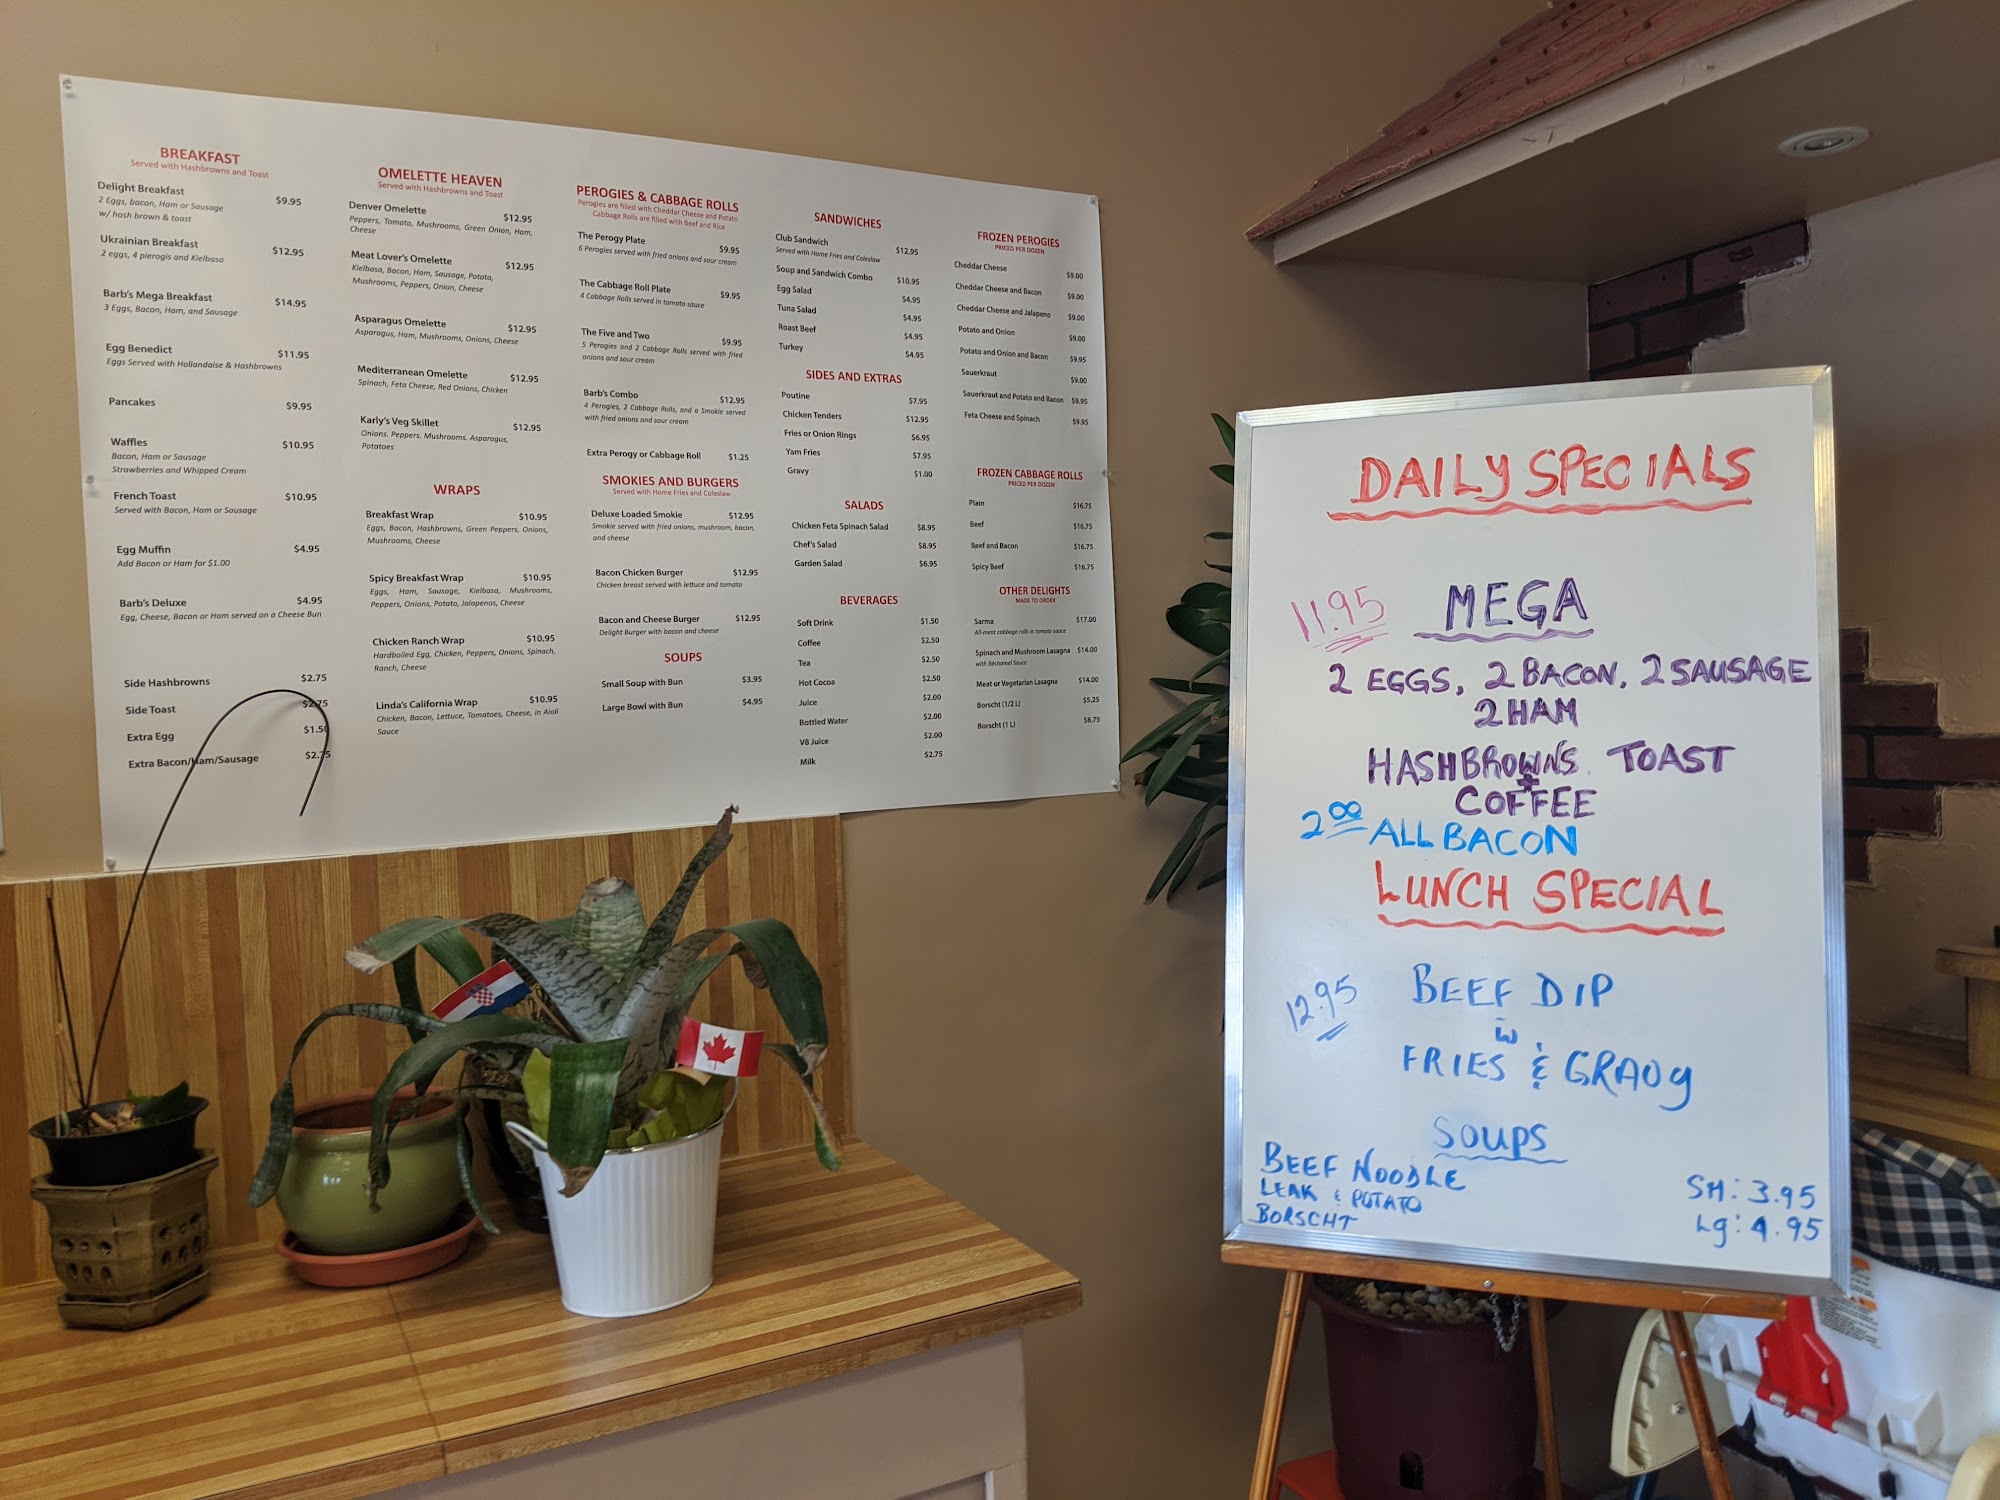 BREAKFAST
Served with Hashbrowns and Toast
Delight Breakfast $9.95
2 Eggs, bacon, Ham or Sausage
w/ hash brown & toast
Ukrainian Breakfast $12.95
2 eggs, 4 pierogis and Kielbasa
Barb's Mega Breakfast $14.95
3 Eggs, Bacon, Ham, and Sausage
Egg Benedict $11.95
Eggs Served with Hollandaise & Hashbrowns
Pancakes $9.95
Waffles $10.95
Bacon, Ham or Sausage
Strawberries and Whipped Cream
French Toast $10.95
Served with Bacon, Ham or Sausage
Egg Muffin $4.95
Add Bacon or Ham for $1.00
Barb's Deluxe $4.95
Egg, Cheese, Bacon or Ham served on a Cheese Bun
Side Hashbrowns $2.75
Side Toast $2.75
Extra Egg $1.50
Extra Bacon/Ham/Sausage $2.75
OMELETTE HEAVEN
Served with Hashbrowns and Toast
Denver Omelette $12.95
Peppers, Tomato, Mushrooms, Green Onion, Ham,
Cheese
Meat Lover's Omelette $12.95
Kielbasa, Bacon, Ham, Sausage, Potato,
Mushrooms, Peppers, Onion, Cheese
Asparagus Omelette $12.95
Asparagus, Ham, Mushrooms, Onions, Cheese
Mediterranean Omelette $12.95
Spinach, Feta Cheese, Red Onions, Chicken
Karly's Veg Skillet $12.95
Onions. Peppers. Mushrooms. Asparagus,
Potatoes
WRAPS
Breakfast Wrap $10.95
Eggs, Bacon, Hashbrowns, Green Peppers, Onions,
Mushrooms, Cheese
Spicy Breakfast Wrap $10.95
Eggs, Ham, Sausage, Kielbasa, Mushrooms,
Peppers, Onions, Potato, Jalapenos, Cheese
Chicken Ranch Wrap $10.95
Hardboiled Egg, Chicken, Peppers, Onions, Spinach,
Ranch, Cheese
Linda's California Wrap $10.95
Chicken, Bacon, Lettuce, Tomatoes, Cheese, in Aioli
Sauce
PEROGIES & CABBAGE ROLLS
Perogies are filled with Cheddar Cheese and Potato
Cabbage Rolls are filled with Beef and Rice
The Perogy Plate $9.95
6 Perogies served with fried onions and sour cream
The Cabbage Roll Plate $9.95
4 Cabbage Rolls served in tomato sauce
The Five and Two $9.95
5 Perogies and 2 Cabbage Rolls served with fried
onions and sour cream
Barb's Combo $12.95
4 Perogies, 2 Cabbage Rolls, and a Smokie served
with fried onions and sour cream
Extra Perogy or Cabbage Roll $1.25
SMOKIES AND BURGERS
Served with Home Fries and Coleslaw
Deluxe Loaded Smokie $12.95
Smokie served with fried onions, mushroom, bacon,
and cheese
Bacon Chicken Burger $12.95
Chicken breast served with lettuce and tomato
Bacon and Cheese Burger $12.95
Delight Burger with bacon and cheese
SOUPS
Small Soup with Bun $3.95
Large Bowl with Bun $4.95
SANDWICHES
Club Sandwich $12.95
Served with Home Fries and Coleslaw
Soup and Sandwich Combo $10.95
Egg Salad $4.95
Tuna Salad $4.95
Roast Beef $4.95
Turkey $4.95
SIDES AND EXTRAS
Poutine $7.95
Chicken Tenders $12.95
Fries or Onion Rings $6.95
Yam Fries $7.95
Gravy $1.00
SALADS
Chicken Feta Spinach Salad $8.95
Chef's Salad $8.95
Garden Salad $6.95
BEVERAGES
Soft Drink $1.50
Coffee $2.50
Tea $2.50
Hot Cocoa $2.50
Juice $2.00
Bottled Water $2.00
V8 Juice $2.00
Milk $2.75
FROZEN PEROGIES
PRICED PER DOZEN
Cheddar Cheese $9.00
Cheddar Cheese and Bacon $9.00
Cheddar Cheese and Jalapeno $9.00
Potato and Onion $9.00
Potato and Onion and Bacon $9.95
Sauerkraut $9.00
Sauerkraut and Potato and Bacon $9.95
Feta Cheese and Spinach $9.95
FROZEN CABBAGE ROLLS
PRICED PER DOZEN
Plain $16.75
Beef $16.75
Beef and Bacon $16.75
Spicy Beef $16.75
OTHER DELIGHTS
MADE TO ORDER
Sarma $17.00
All-meat cabbage rolls in tomato sauce
Spinach and Mushroom Lasagna $14.00
with Béchamel Sauce
Meat or Vegetarian Lasagna $14.00
Borscht (1/2 L) $5.25
Borscht (1 L) $8.75
DAILY SPECIALS
11.95 MEGA
2 EGGS, 2 BACON, 2 SAUSAGE
2 HAM
HASHBROWNS TOAST
+
COFFEE
2.00 ALL BACON
LUNCH SPECIAL
12.95 BEEF DIP
w
FRIES & GRAVY
SOUPS
BEEF NOODLE
LEAK & POTATO
BORSCHT
SM: 3.95
Lg: 4.95